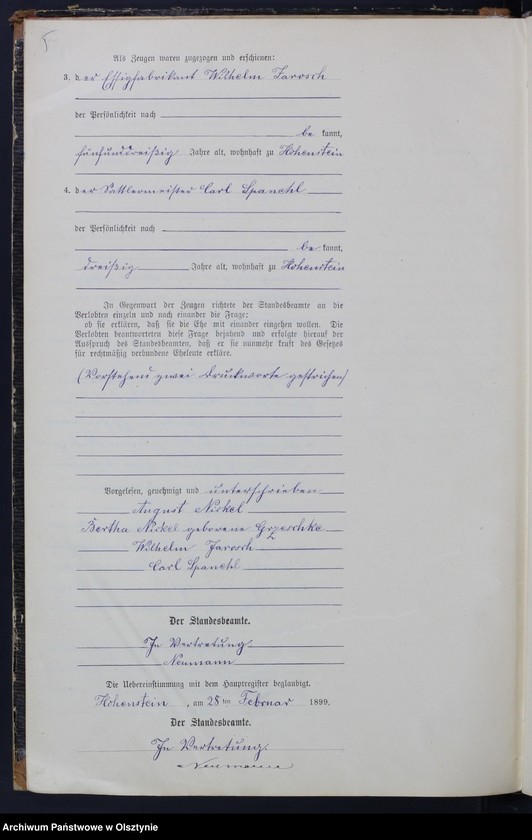 Als Zeugen waren zugezogen und erschienen:
3. der Essigfabrikant Wilhelm Jarosch
der Persönlichkeit nach
be kannt,
fünfunddreißig Jahre alt, wohnhaft zu Hohenstein
4. der Sattlermeister Carl Spanehl
der Persönlichkeit nach
be kannt,
dreißig Jahre alt, wohnhaft zu Hohenstein
In Gegenwart der Zeugen richtete der Standesbeamte an die
Verlobten einzeln und nach einander die Frage:
ob sie erklären, daß sie die Ehe mit einander eingehen wollen. Die
Verlobten beantworteten diese Frage bejahend und erfolgte hierauf der
Ausspruch des Standesbeamten, daß er sie nunmehr kraft des Gesetzes
für rechtmäßig verbundene Eheleute erkläre.
(Vorstehend zwei Druckworte gestrichen)
Vorgelesen, genehmigt und unterschrieben
August Nickel
Bertha Nickel geborene Grzeschke
Wilhelm Jarosch
Carl Spanehl
Der Standesbeamte.
In Vertretung
Neumann
Die Uebereinstimmung mit dem Hauptregister beglaubigt.
Hohenstein, am 28 ten Februar 1899.
Der Standesbeamte.
In Vertretung.
Neumann
Archiwum Państwowe w Olsztynie